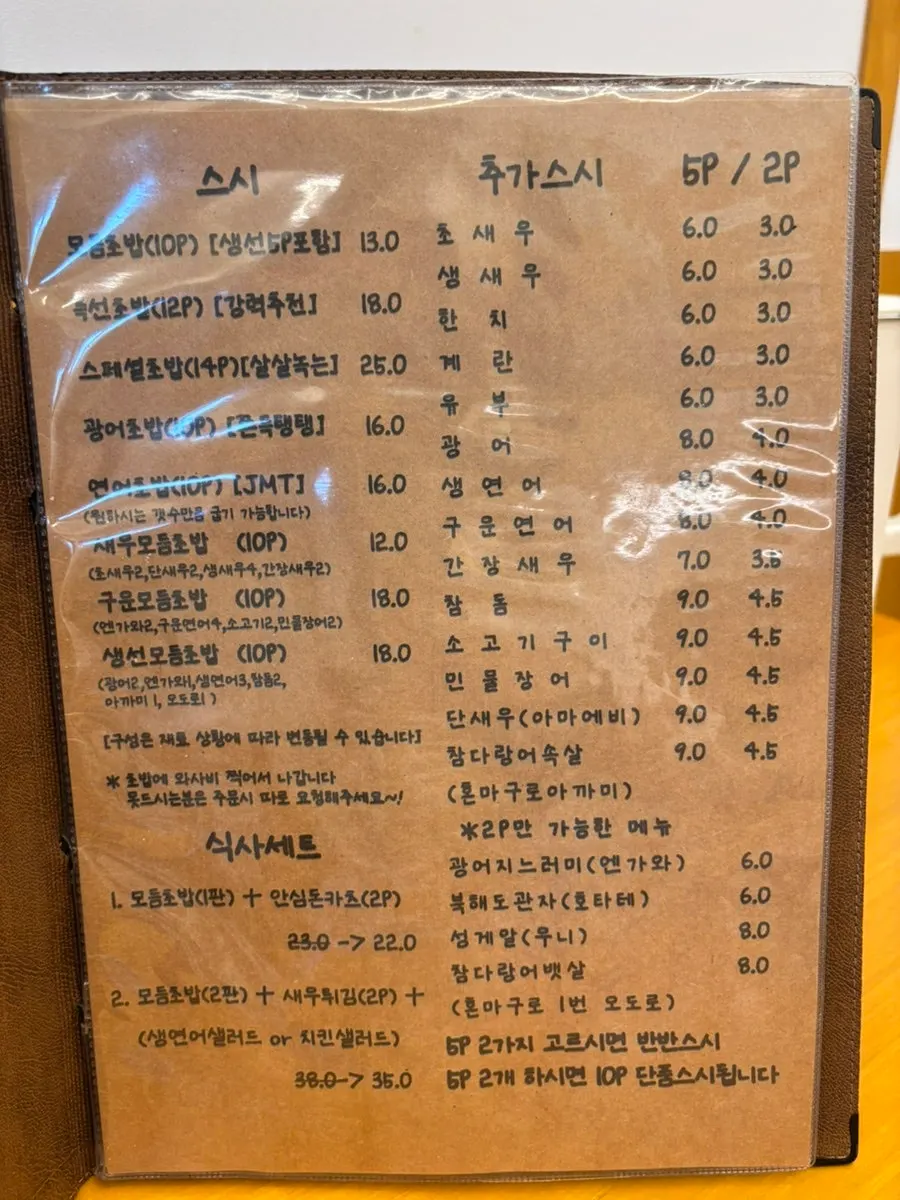 스시
모듬초밥(10P) [생선5P포함] 13.0
특선초밥(12P) [강력추천] 18.0
스페셜초밥(14P)[살살녹는] 25.0
광어초밥(10P) [쫀득탱탱] 16.0
연어초밥(10P) [JMT] 16.0
(원하시는 갯수만큼 굽기 가능합니다)
새우모듬초밥 (10P) 12.0
(초새우2,단새우2,생새우4,간장새우2)
구운모듬초밥 (10P) 18.0
(엔가와2,구운연어4,소고기2,민물장어2)
생선모듬초밥 (10P) 18.0
(광어2,엔가와1,생연어3,참돔2,
아까미 1, 오도로1 )
[구성은 재료 상황에 따라 변동될 수 있습니다]
* 초밥에 와사비 찍어서 나갑니다
못드시는분은 주문시 따로 요청해주세요~!
식사세트
1. 모듬초밥(1판) + 안심돈카츠(2P)
23.0 -> 22.0
2. 모듬초밥(2판) + 새우튀김(2P) +
(생연어샐러드 or 치킨샐러드)
38.0-> 35.0
추가스시 5P / 2P
초새우 6.0 3.0
생새우 6.0 3.0
한치 6.0 3.0
계란 6.0 3.0
유부 6.0 3.0
광어 8.0 4.0
생연어 8.0 4.0
구운연어 8.0 4.0
간장새우 7.0 3.5
참돔 9.0 4.5
소고기구이 9.0 4.5
민물장어 9.0 4.5
단새우(아마에비) 9.0 4.5
참다랑어속살 9.0 4.5
(혼마구로아까미)
*2P만 가능한 메뉴
광어지느러미(엔가와) 6.0
북해도관자(호타테) 6.0
성게알(우니) 8.0
참다랑어뱃살 8.0
(혼마구로 1번 오도로)
5P 2가지 고르시면 반반스시
5P 2개 하시면 10P 단품스시됩니다